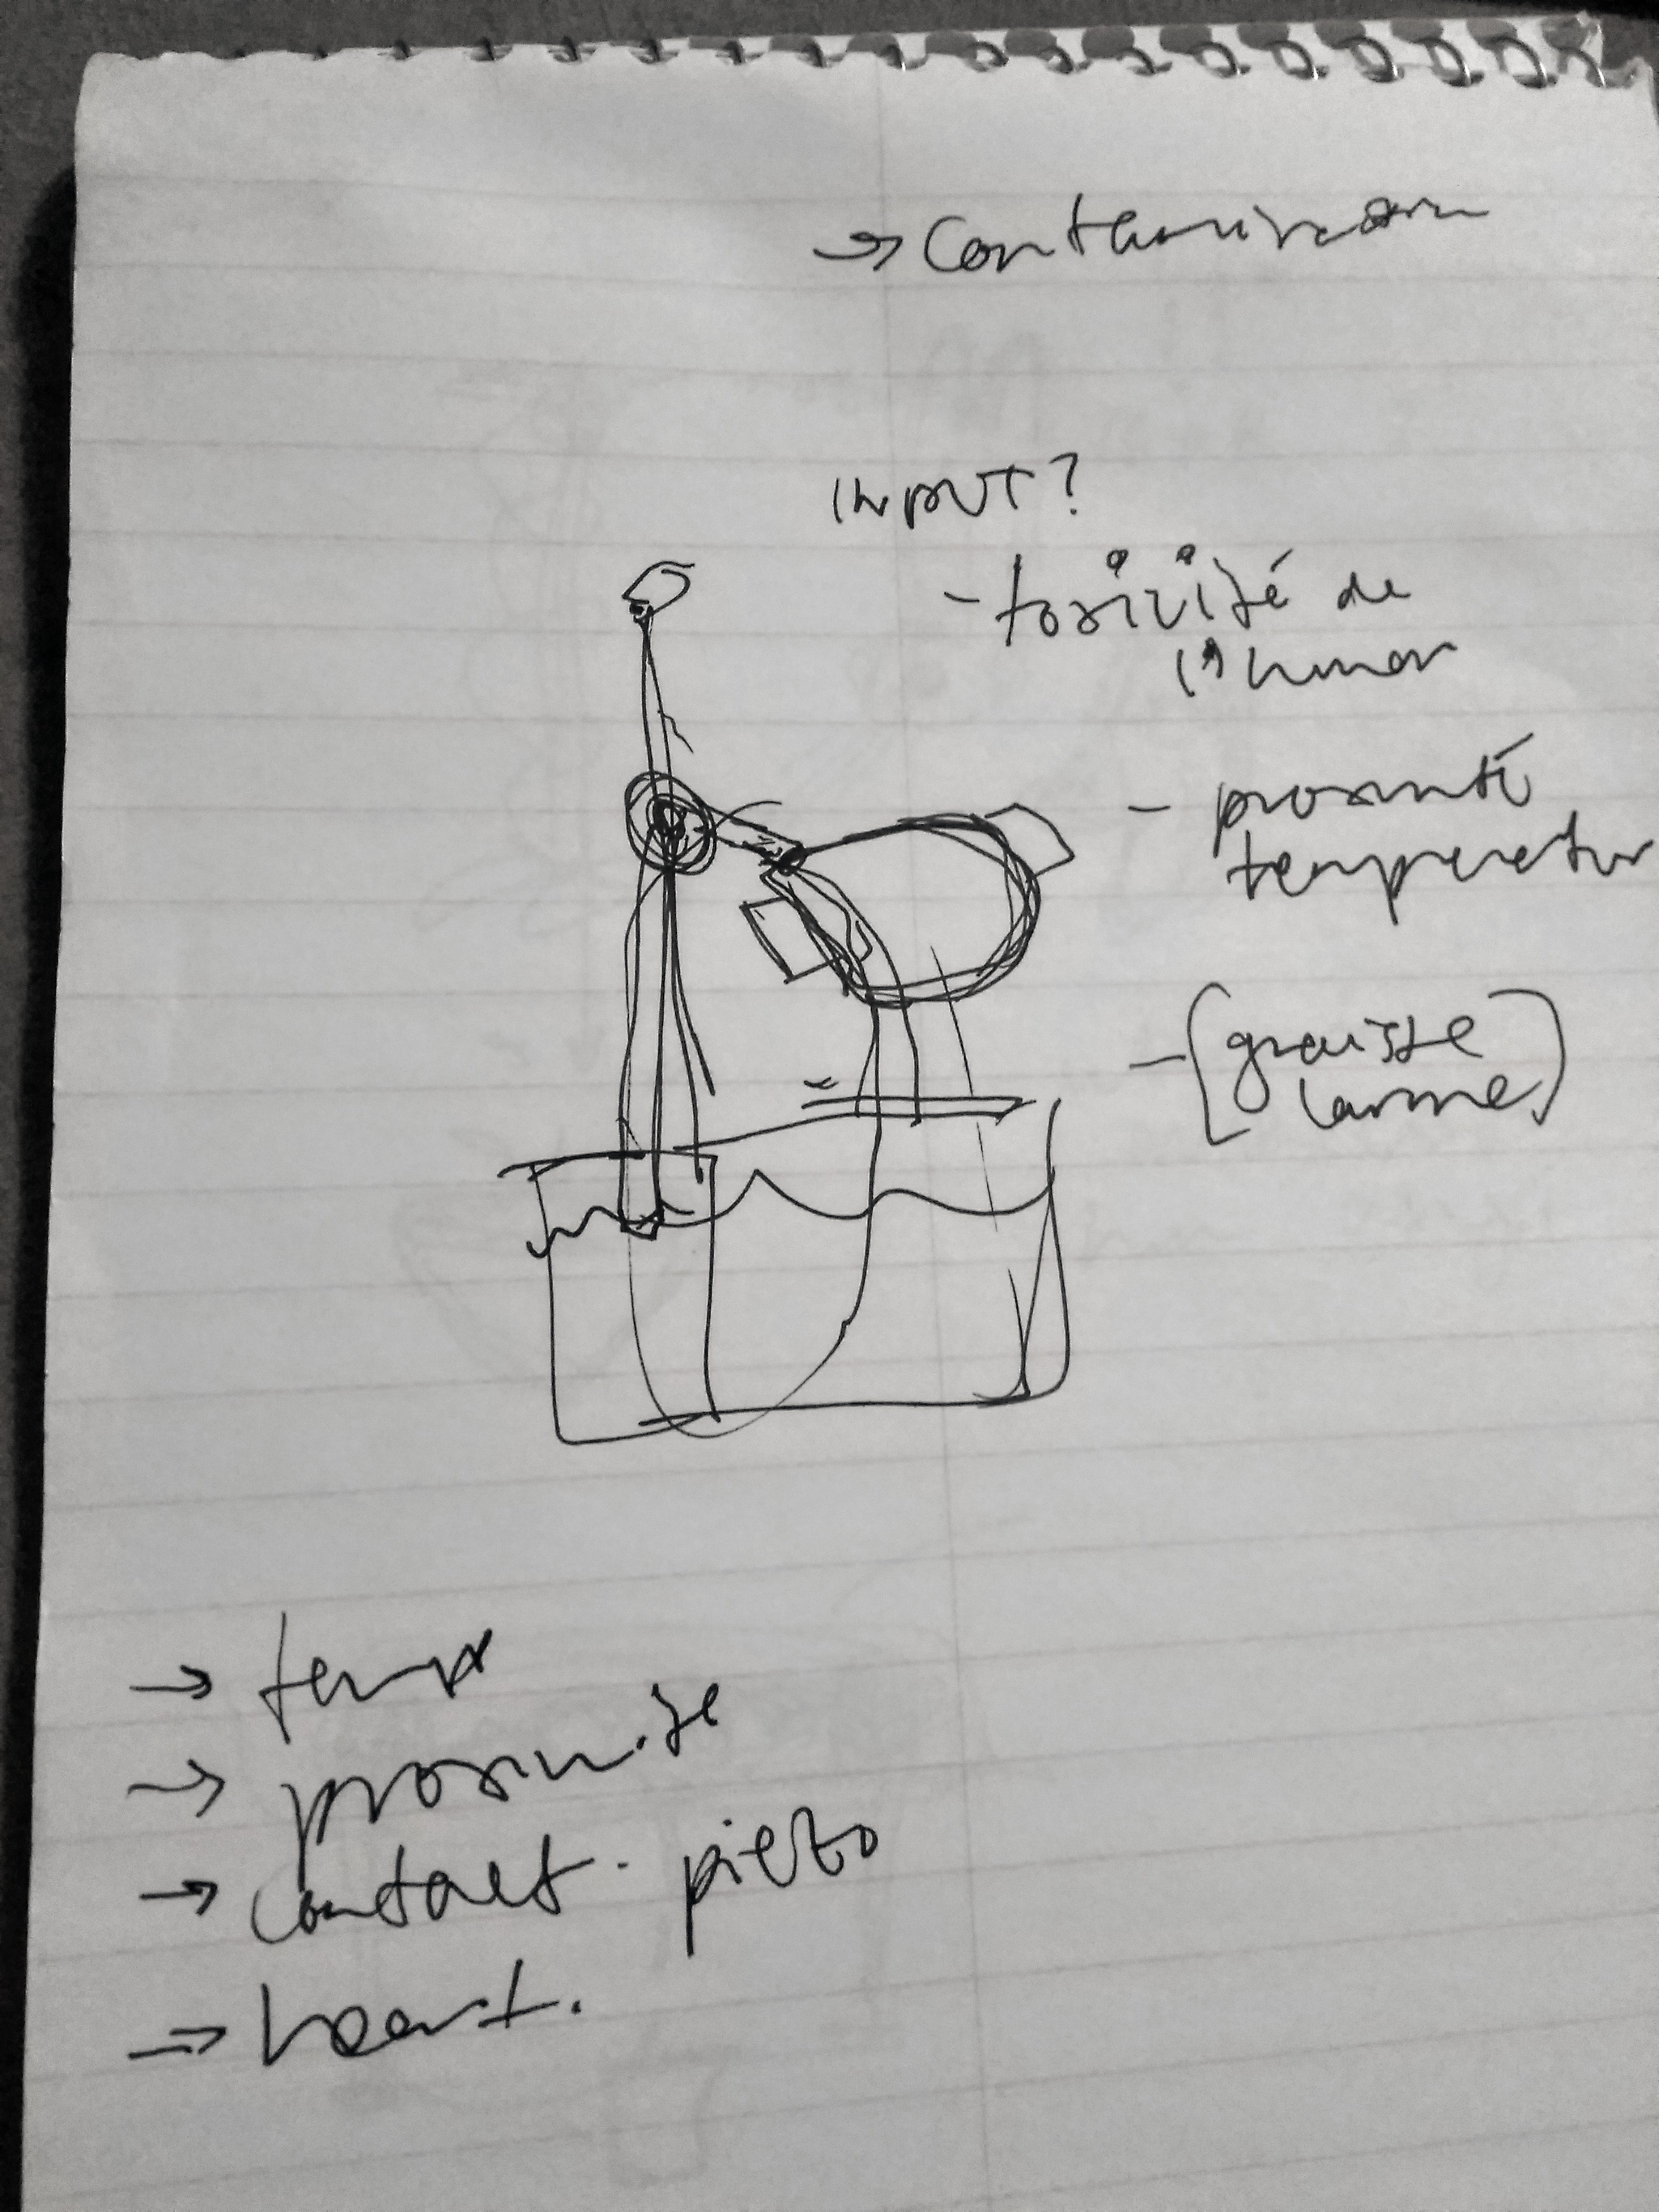 → Contamination
INPUT?
- toxicité de
l'humain
- proximité
temperatur
- (graisse
larme)
→ temp
→ proximite
→ contact. piezo
→ heart.